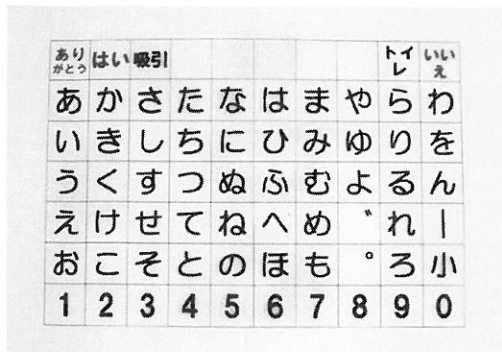 ありがとう はい 吸引 トイレ いいえ
あ か さ た な は ま や ら わ
い き し ち に ひ み ゆ り を
う く す つ ぬ ふ む よ る ん
え け せ て ね へ め ゛ れ ー
お こ そ と の ほ も ゜ ろ 小
1 2 3 4 5 6 7 8 9 0